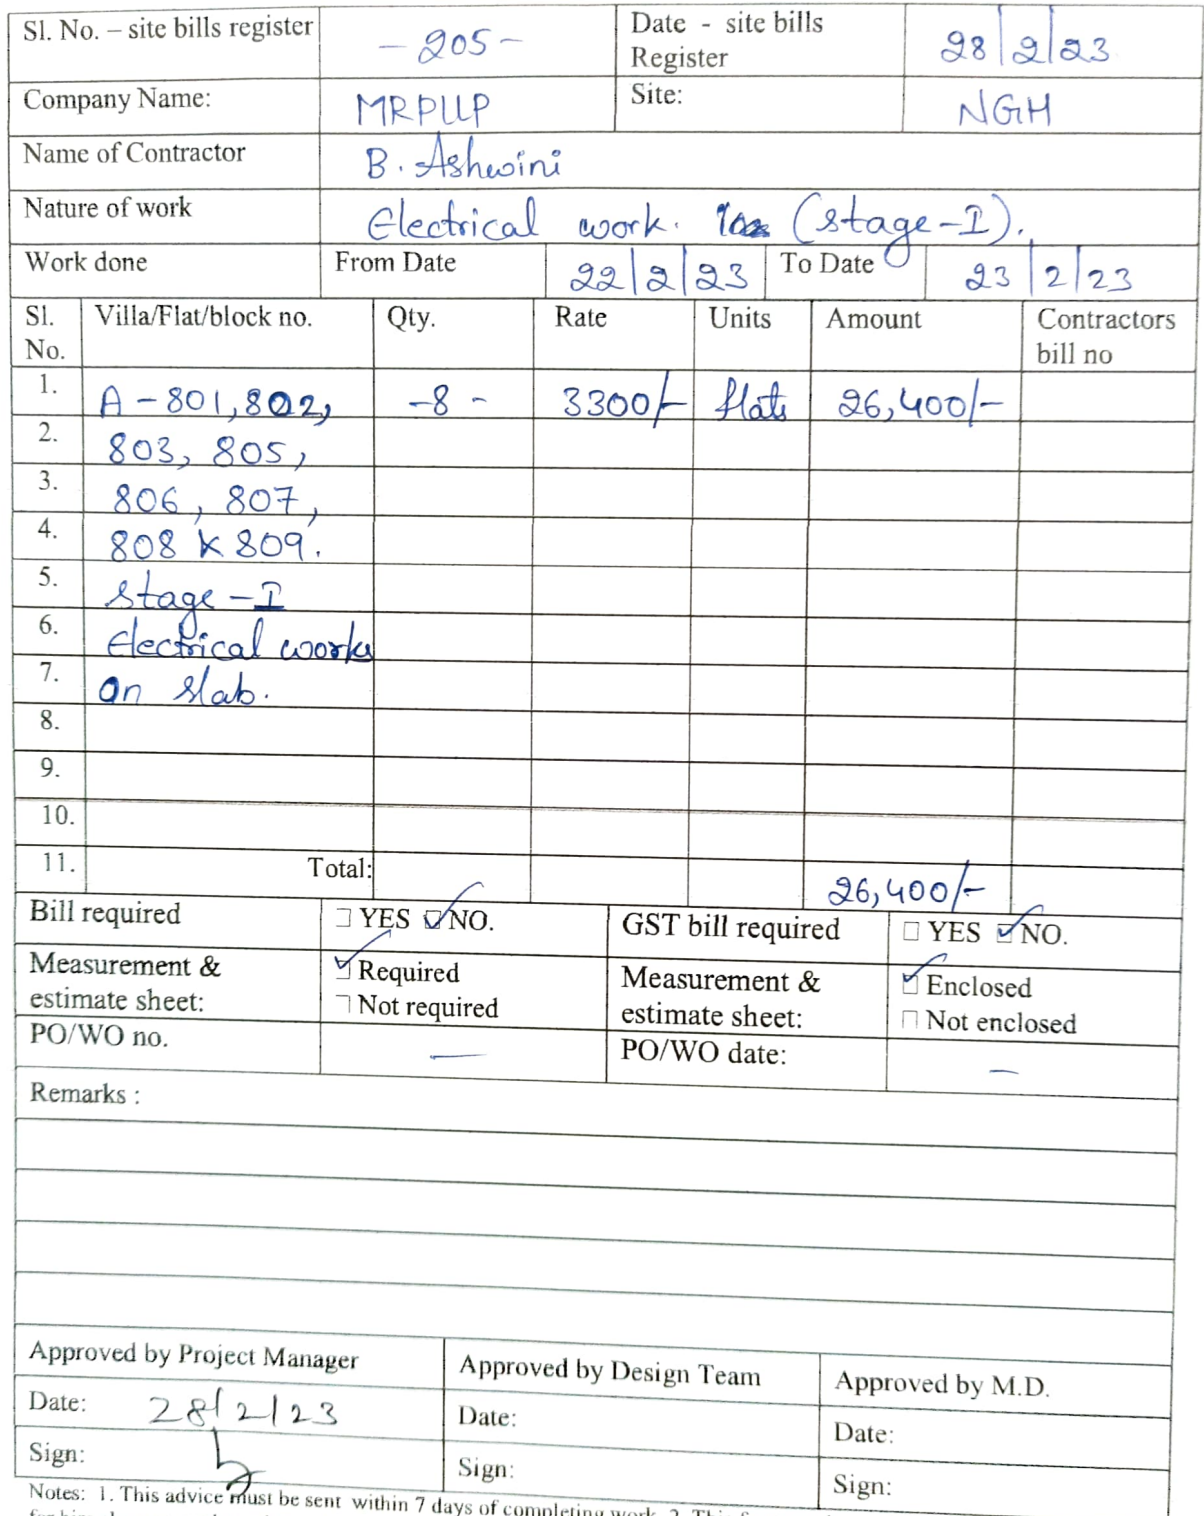 Sl. No. – site bills register - 205 - Date - site bills Register 28/2/23
Company Name: MRPLLP Site: NGH
Name of Contractor B. Ashwini
Nature of work Electrical work. (Stage-I).
Work done From Date 22/2/23 To Date 23/2/23
Sl. No. Villa/Flat/block no. Qty. Rate Units Amount Contractors bill no
1. A - 801, 802, -8- 3300/- flats 26,400/-
2. 803, 805,
3. 806, 807,
4. 808 & 809.
5. Stage - I
6. Electrical works
7. on slab.
8.
9.
10.
11. Total: 26,400/-
Bill required YES NO. GST bill required YES NO.
Measurement & estimate sheet: Required Not required Measurement & estimate sheet: Enclosed Not enclosed
PO/WO no. — PO/WO date: —
Remarks :
Approved by Project Manager Approved by Design Team Approved by M.D.
Date: 28/2/23 Date: Date:
Sign: Sign: Sign:
Notes: 1. This advice must be sent within 7 days of completing work. 2. This